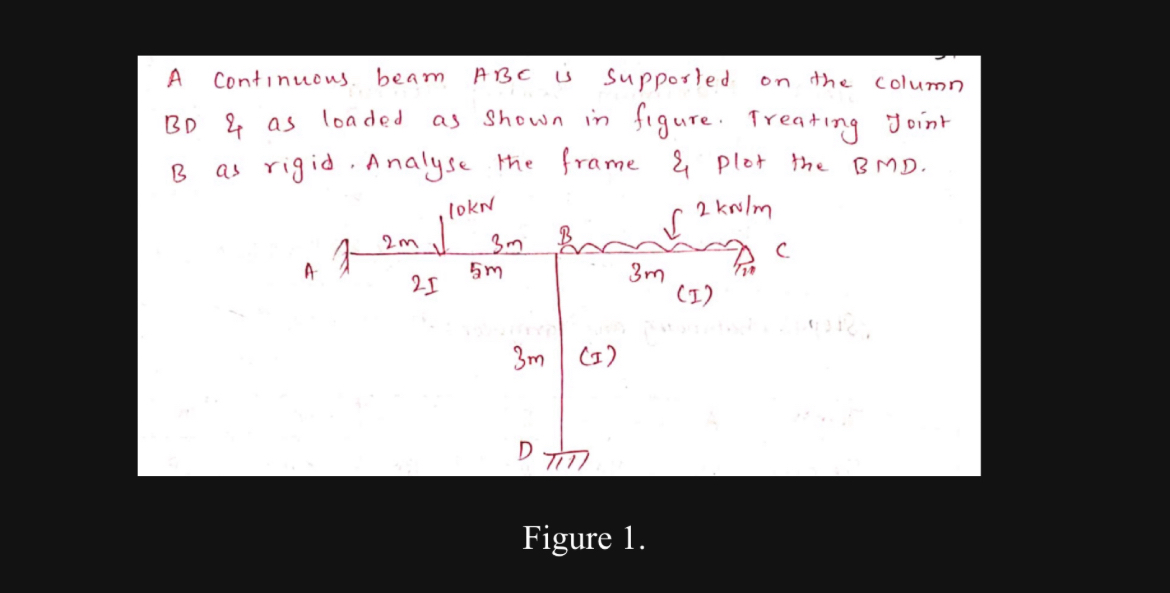 A Continuous. beam ABC is supported on the column
BD & as loaded as shown in figure. Treating Joint
B as rigid. Analyse the frame & plot the BMD.
10kN
2 kN/m
2m
3m
B
C
A
5m
3m
2I
(I)
3m
(I)
D
Figure 1.